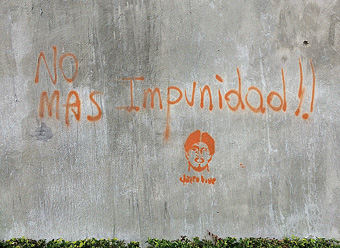 NO
MAS Impunidad!!